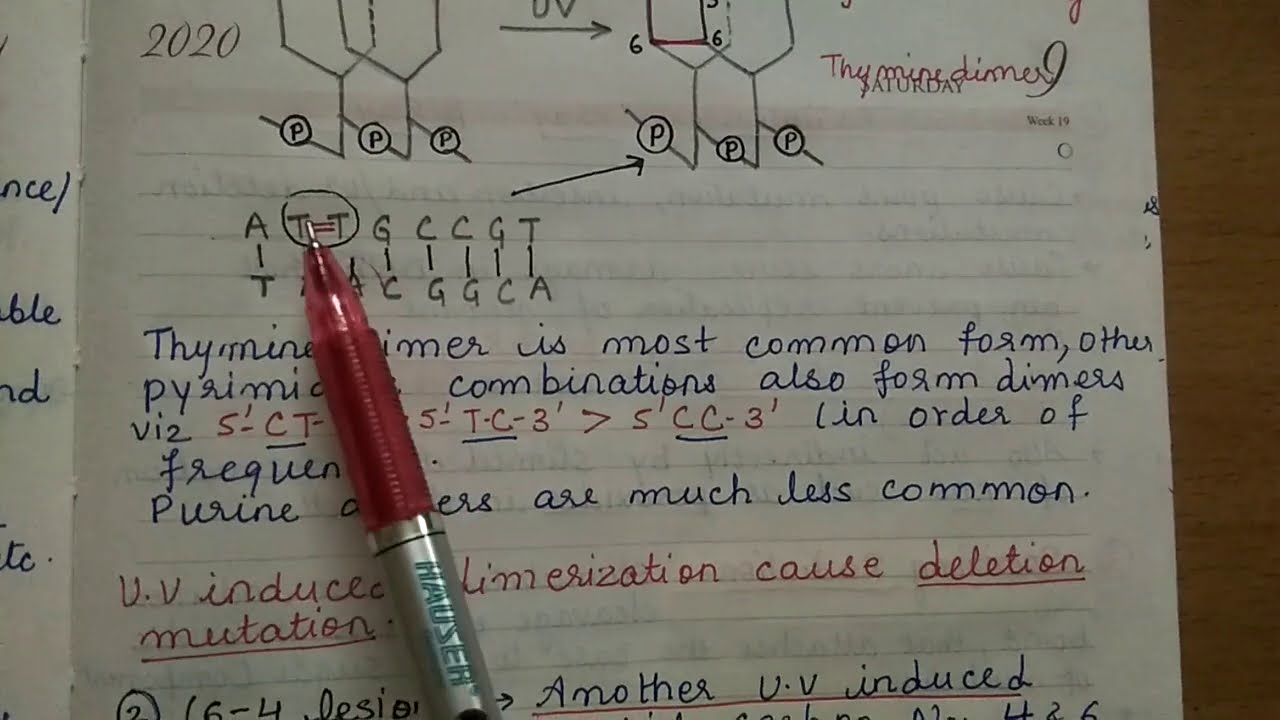 2020
UV
5
6 6
Thymine dimer
9
SATURDAY
Week 19
P P P P P P
A T=T G C C G T
T A C G G C A
nce/
Thymine dimer is most common form, other
able
pyrimi combinations also form dimers
nd
viz 5'-CT- 5'-T-C-3' > 5'CC-3' (in order of
frequen
Purine are much less common.
etc.
U.V induced dimerization cause deletion
mutation.
HAUSER
② (6-4 lesion → Another U.V induced
4 & 6